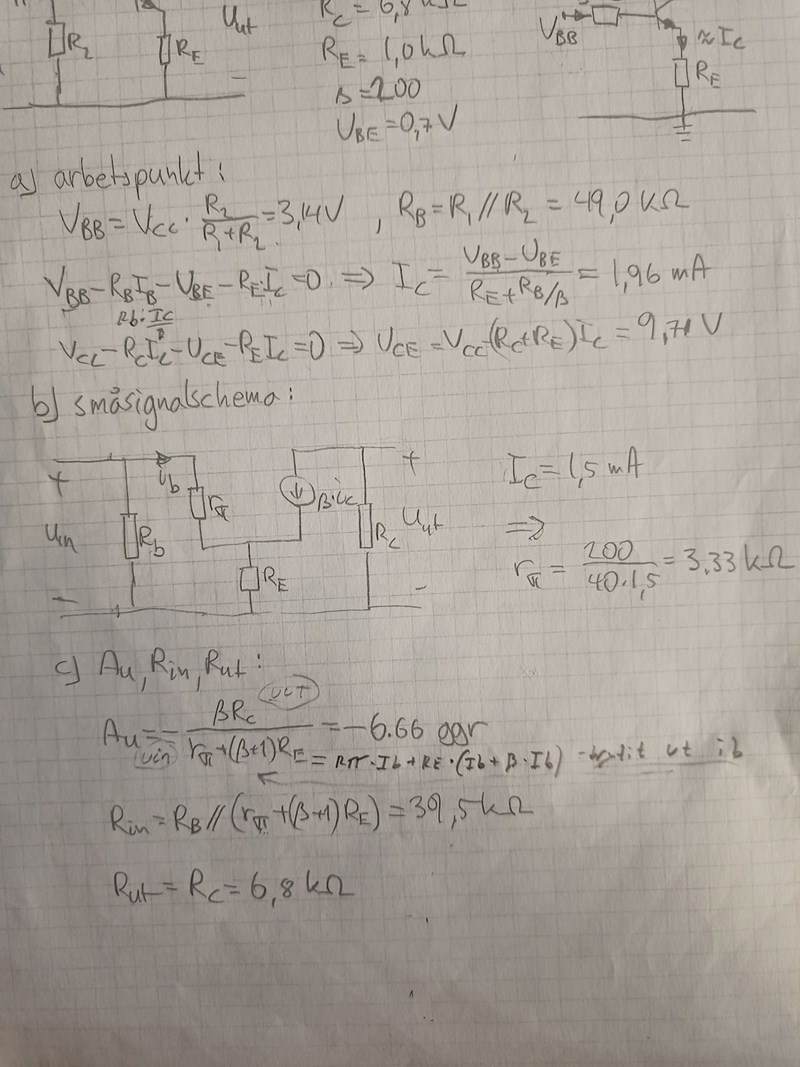 Uut
R_C = 6,8 kΩ
R_2
R_E
R_E = 1,0 kΩ
β = 200
U_BE = 0,7 V
−
V_BB
≈ I_C
R_E
a) arbetspunkt:
V_BB = V_CC · R_2/(R_1+R_2) = 3,14V , R_B = R_1 // R_2 = 49,0 kΩ
V_BB − R_B I_B − U_BE − R_E I_C = 0 ⇒ I_C = (V_BB − U_BE)/(R_E + R_B/β) = 1,96 mA
Rb · IC/β
V_CC − R_C I_C − U_CE − R_E I_C = 0 ⇒ U_CE = V_CC − (R_C + R_E) I_C = 9,71 V
b) småsignalschema:
+
i_b
r_π
β·i_c
+
I_C = 1,5 mA
U_in
R_b
R_C
U_ut
⇒
R_E
r_π = 200/(40·1,5) = 3,33 kΩ
−
−
c) Au, Rin, Rut:
Au = − βR_C/(r_π + (β+1)R_E) = −6.66 ggr
uct
uin
= Rπ · Ib + RE · (Ib + β · Ib) - ut ib
Rin = R_B // (r_π + (β+1)R_E) = 39,5 kΩ
Rut = R_C = 6,8 kΩ